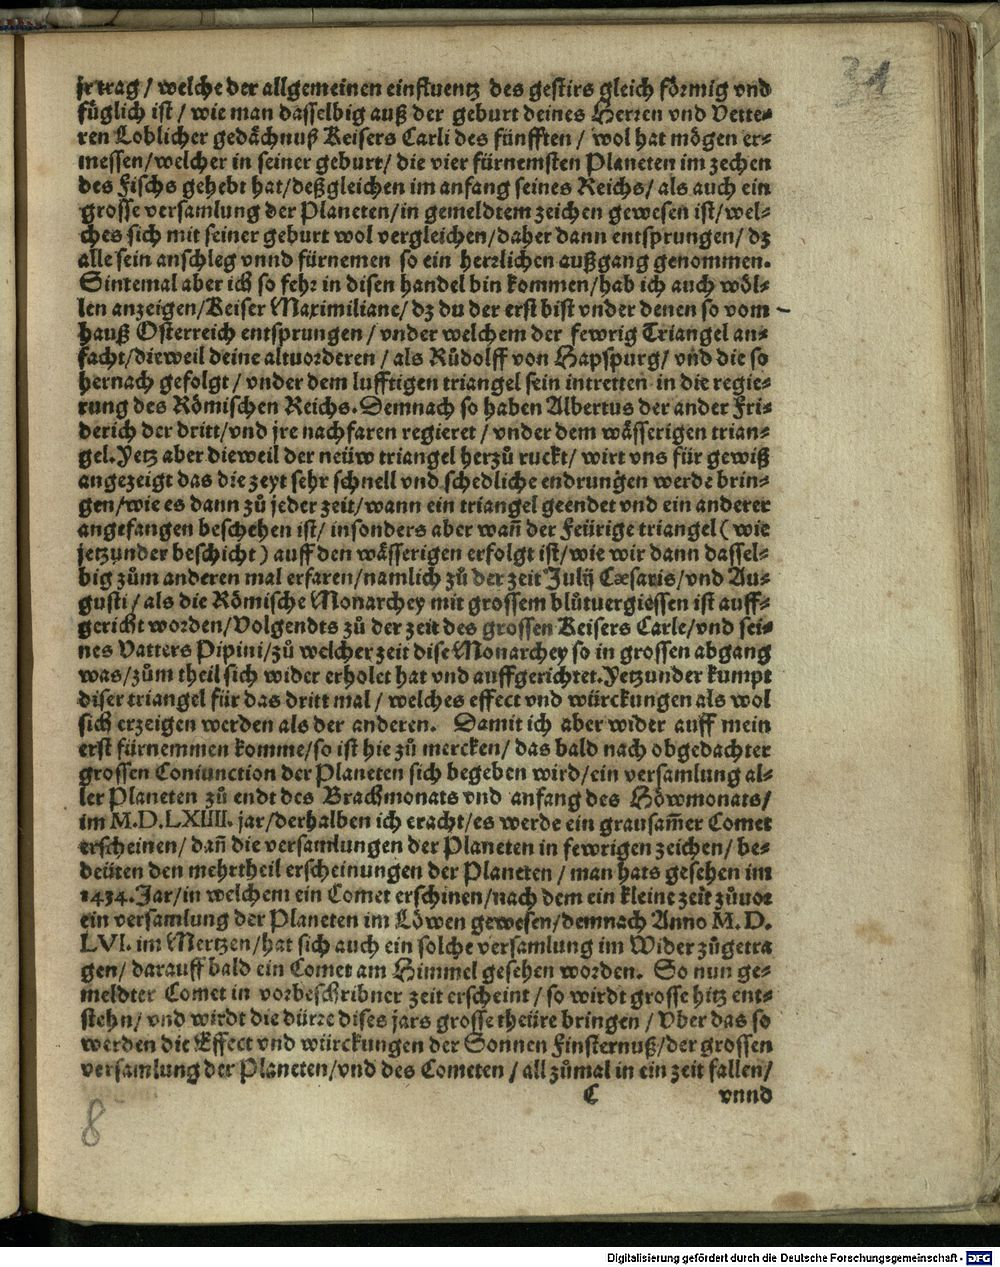 31
jr trag / welche der allgemeinen einfluentz des gestirs gleich förmig vnd
füglich ist / wie man dasselbig auß der geburt deines Herren vnd Vette-
ren Loblicher gedächnuß Keisers Carli des fünfften / wol hat mögen er-
messen/welcher in seiner geburt/ die vier fürnemsten Planeten im zechen
des Fischs gehebt hat/deßgleichen im anfang seines Reichs/ als auch ein
grosse versamlung der Planeten/in gemeldtem zeichen gewesen ist/wel-
ches sich mit seiner geburt wol vergleichen/daher dann entsprungen/ dz
alle sein anschleg vnnd fürnemen so ein herrlichen außgang genommen.
Sintemal aber ich so fehr in disen handel bin kommen/hab ich auch wöl-
len anzeigen/Keiser Maximiliane/ dz du der erst bist vnder denen so vom
hauß Osterreich entsprungen / vnder welchem der fewrig Triangel an-
facht/dieweil deine altuorderen / als Rüdolff von Hapspurg/ vnd die so
hernach gefolgt / vnder dem lufftigen triangel sein intretten in die regie-
rung des Römischen Reichs. Demnach so haben Albertus der ander Fri-
derich der dritt/vnd jre nachfaren regieret / vnder dem wässerigen trian-
gel. Yetz aber dieweil der neüw triangel herzů ruckt/ wirt vns für gewiß
angezeigt das die zeyt sehr schnell vnd schedliche endrungen werde brin-
gen/wie es dann zů jeder zeit/wann ein triangel geendet vnd ein anderer
angefangen beschehen ist/ insonders aber wañ der Feürige triangel ( wie
jetzunder beschicht ) auff den wässerigen erfolgt ist/wie wir dann dassel-
big zům anderen mal erfaren/namlich zů der zeit Julij Cæsaris/vnd Au-
gusti / als die Römische Monarchey mit grossem blůtuergiessen ist auff-
gericht worden/Volgendts zů der zeit des grossen Keisers Carle/vnd sei-
nes Vatters Pipini/zů welcher zeit dise Monarchey so in grossen abgang
was/zům theil sich wider erholet hat vnd auffgerichtet. Yetzunder kumpt
diser triangel für das dritt mal / welches effect vnd würckungen als wol
sich erzeigen werden als der anderen. Damit ich aber wider auff mein
erst fürnemmen komme/so ist hie zů mercken/ das bald nach obgedachter
grossen Coniunction der Planeten sich begeben wird/ein versamlung al-
ler Planeten zů endt des Brachmonats vnd anfang des Höwmonats/
im M.D.LXIIII. jar/derhalben ich eracht/es werde ein grausam̃er Comet
erscheinen/ dañ die versamlungen der Planeten in fewrigen zeichen/ be-
deüten den mehrtheil erscheinungen der Planeten / man hats gesehen im
1434. Jar/in welchem ein Comet erschinen/nach dem ein kleine zeit zůuor
ein versamlung der Planeten im Löwen gewesen/demnach Anno M. D.
LVI. im Mertzen/hat sich auch ein solche versamlung im Wider zůgetra
gen/ darauff bald ein Comet am Himmel gesehen worden. So nun ge-
meldter Comet in vorbeschribner zeit erscheint / so wirdt grosse hitz ent-
stehn/ vnd wirdt die dürre dises jars grosse theüre bringen / Vber das so
werden die Effect vnd würckungen der Sonnen Finsternuß/der grossen
versamlung der Planeten/vnd des Cometen / all zůmal in ein zeit fallen/
C vnnd
8
Digitalisierung gefördert durch die Deutsche Forschungsgemeinschaft - DFG